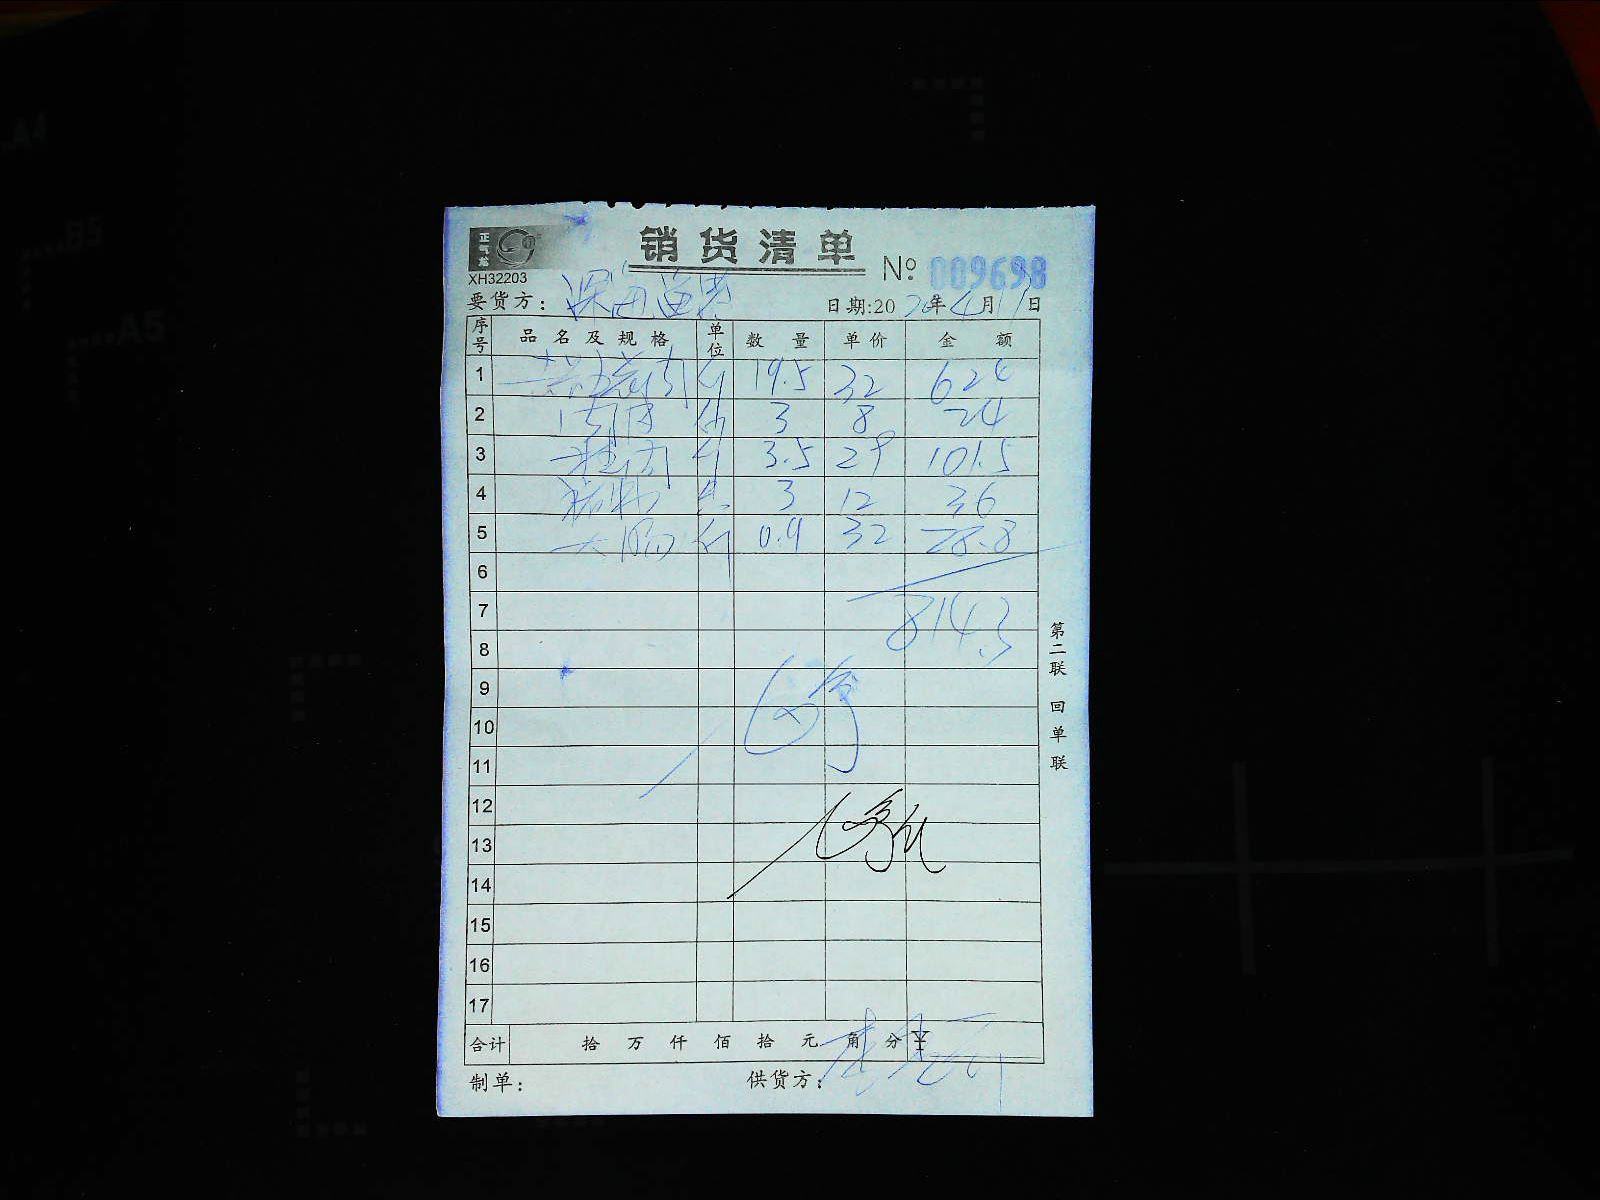 正气龙
销货清单
XH32203
№ 009698
要货方: 深海渔港
日期:20 20年4月11日
序号 品名及规格 单位 数量 单价 金额
1 斤 19.5 32 624
2 3 8 24
3 斤 3.5 29 101.5
4 3 12 36
5 大肠 斤 0.9 32 28.8
6
7 814.3
8
9
10
11
12
13
14
15
16
17
合计 拾 万 仟 佰 拾 元 角 分 ¥
制单: 供货方:
第二联 回单联
A4
B5
A5